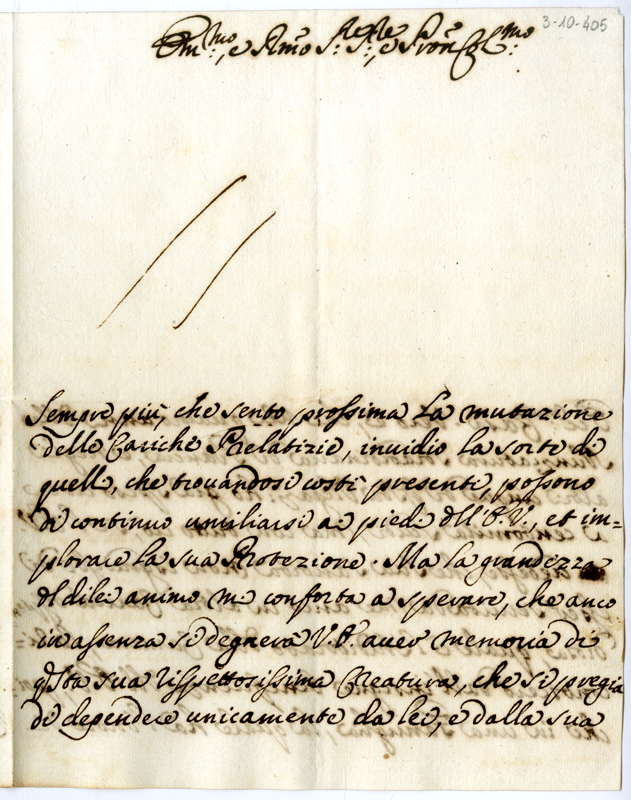 3-10-405
Em:mo, e Rmo S.re S.re, e Pron Col:mo
Sempre più, che sento prossima la mutazione
delle Cariche Prelatizie, invidio la sorte di
quelli, che trovandosi costì presenti, possono
di continuo umiliarsi a' piedi dll' V.E., et im=
plorare la sua Protezione. Ma la grandezza
dl di lei animo mi conforta a sperare, che anco
in assenza si degnerà V.E. aver memoria di
qsta sua rispettosissima Creatura, che si pregia
di dependere unicamente da lei, e dalla sua